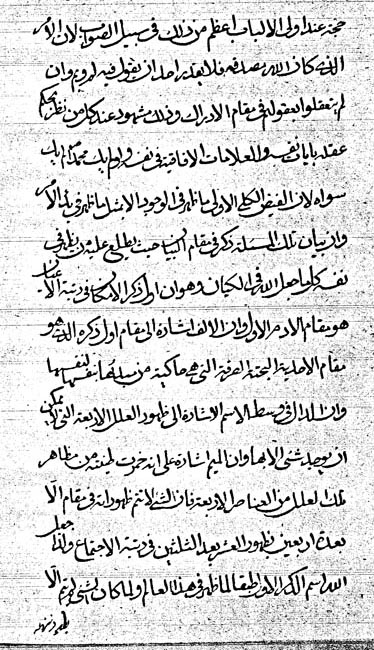 حجة عند اولى الالباب اعظم من ذلك فى سبيل الصواب لان الامر
الذى كان الله مصدقه فلا يقدر احد ان يقول فيه لم وبم وان
لم يعقلوا بعقولهم فى مقام الادراك وذلك مشهود عند كل من نظر بحكم
عقله بايات نفسه والعلامات الافاقية فى نفسه ولو لم يك محمد لم يك
سواه لان الفيض الكلى الاولى ما ظهر فى الوجود الا بمثل ما ظهر فى بدء الامر
وان بيان تلك المسئلة ذكر فى مقام البيان حيث يطلع عليه من يظهر فى
نفسه كلما جعل الله فى الكيان وهو ان اول ذكر الامكان فى رتبة الاعيان
هو مقام الادم الاولى وان الالف اشارة الى مقام اول ذكره الذى هو
مقام الاحدية البحتة الصرفة التى هى حاكية من مبدئها بنفسها لنفسها
وان الدال فى وسط الاسم لاشارة الى ظهور العلل الاربعة التى لا يمكن
ان يوجد شئ الا بها وان الميم اشارة على انه خمرت طينته من مظاهر
تلك العلل من العناصر الاربعة فان الشئ لا يتم ظهوراته فى مقام الا
بعدة اربعين بظهور العشر بعد الثلثين فى رتبة الاجتماع ولذا جعل
الله اسم الذكر الاول طبقا لما ظهر فى هذا العالم ولما كان الشئ لم يتم الا